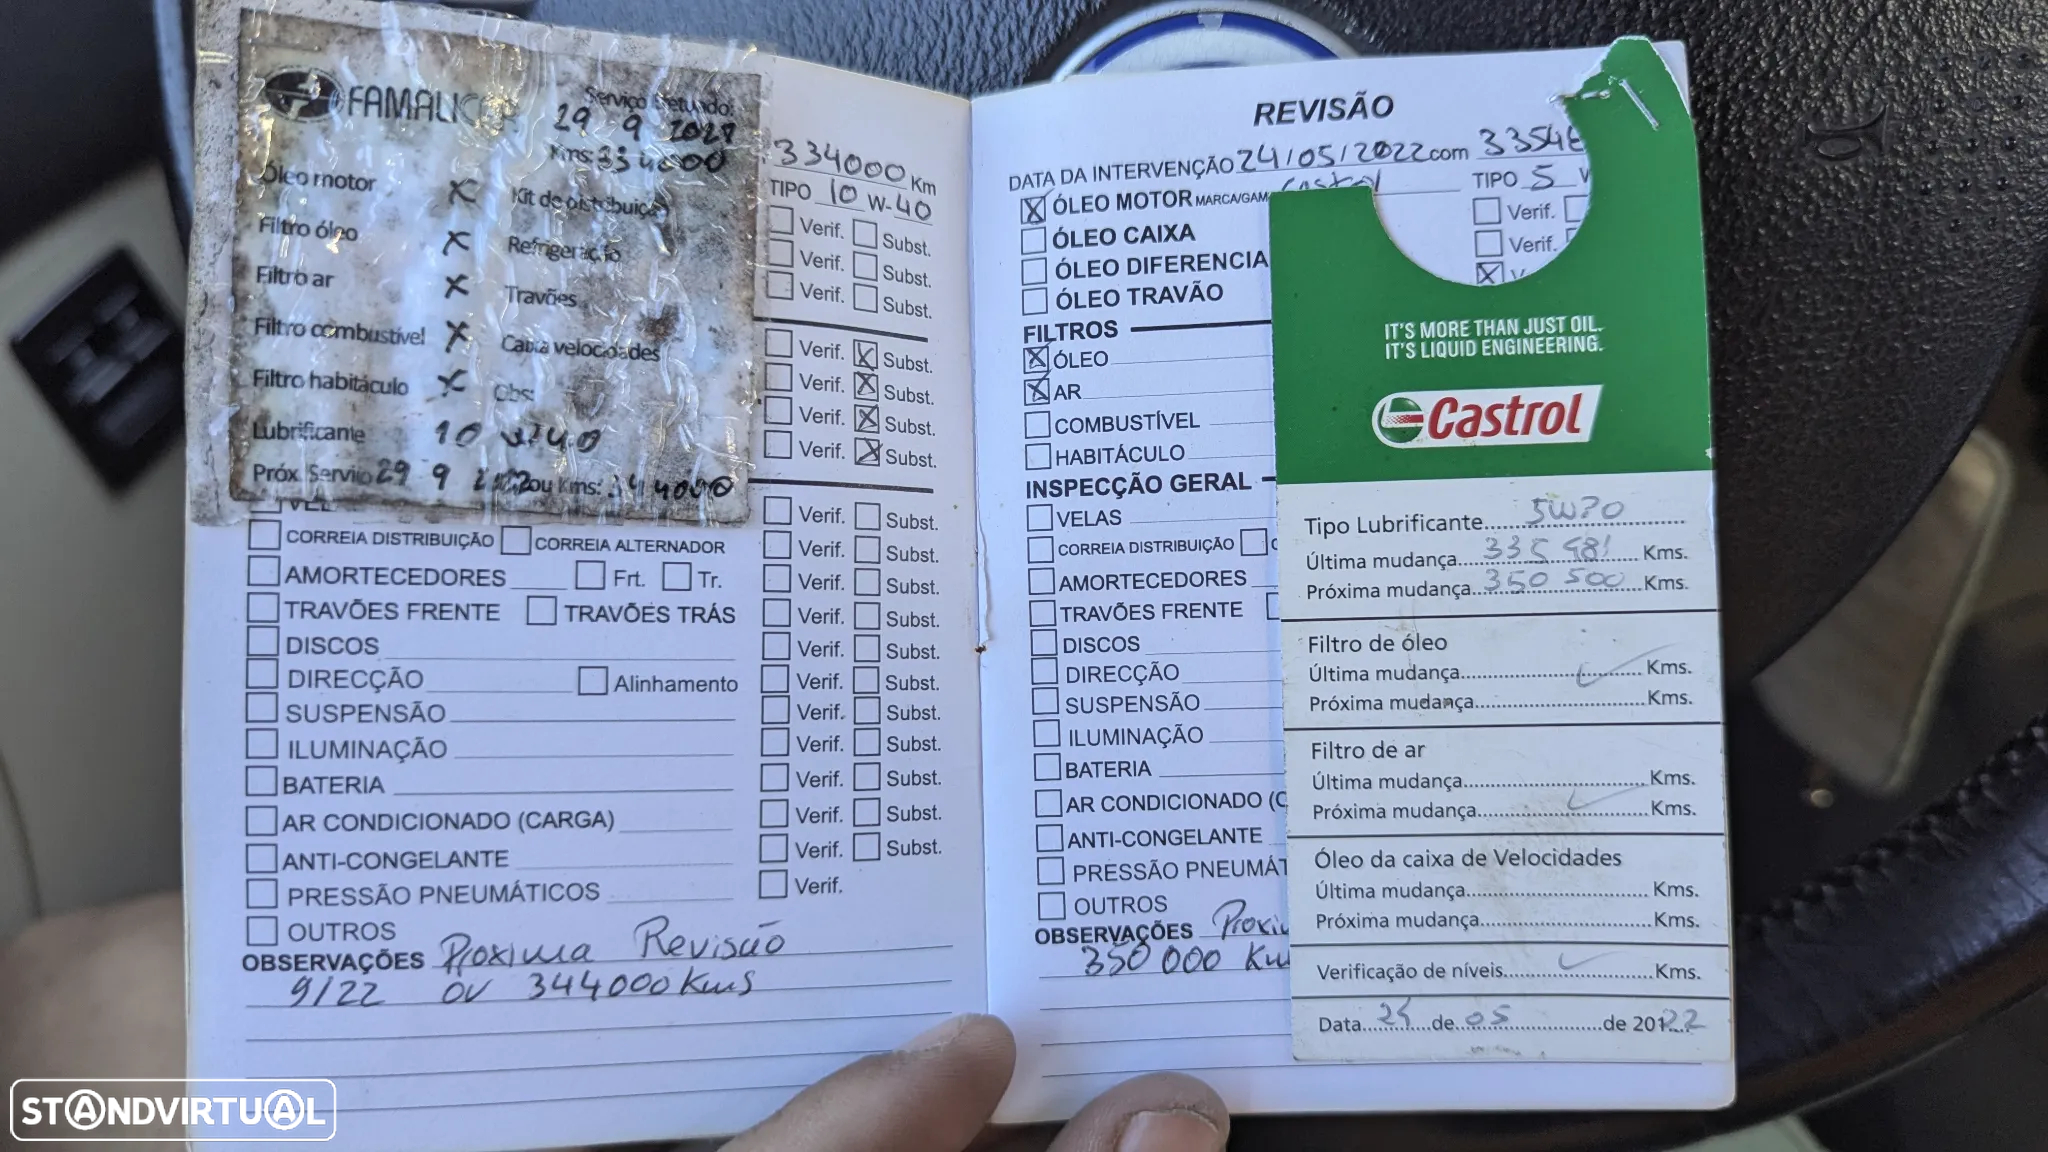 FAMALICAR
Serviço Efetuado:
29 9 2021
Kms: 334000
Óleo motor X Kit de distribuição
Filtro óleo X Refrigeração
Filtro ar X Travões
Filtro combustível X Caixa velocidades
Filtro habitáculo X Obs:
Lubrificante 10 W40
Próx. Serviço 29 9 2022 ou Kms: 344000
334000 Km
TIPO 10 W-40
Verif. Subst.
Verif. Subst.
Verif. Subst.
Verif. X Subst.
Verif. X Subst.
Verif. X Subst.
Verif. X Subst.
VEL
Verif. Subst.
CORREIA DISTRIBUIÇÃO CORREIA ALTERNADOR Verif. Subst.
AMORTECEDORES Frt. Tr. Verif. Subst.
TRAVÕES FRENTE TRAVÕES TRÁS Verif. Subst.
DISCOS Verif. Subst.
DIRECÇÃO Alinhamento Verif. Subst.
SUSPENSÃO Verif. Subst.
ILUMINAÇÃO Verif. Subst.
BATERIA Verif. Subst.
AR CONDICIONADO (CARGA) Verif. Subst.
ANTI-CONGELANTE Verif. Subst.
PRESSÃO PNEUMÁTICOS Verif.
OUTROS
OBSERVAÇÕES Proxima Revisão
9/22 ou 344000 Kms
REVISÃO
DATA DA INTERVENÇÃO 24/05/2022 com 3354
X ÓLEO MOTOR MARCA/GAM Castrol TIPO 5 W
ÓLEO CAIXA Verif.
ÓLEO DIFERENCIA Verif.
ÓLEO TRAVÃO X V
FILTROS
X ÓLEO
X AR
COMBUSTÍVEL
HABITÁCULO
INSPECÇÃO GERAL
VELAS
CORREIA DISTRIBUIÇÃO
AMORTECEDORES
TRAVÕES FRENTE
DISCOS
DIRECÇÃO
SUSPENSÃO
ILUMINAÇÃO
BATERIA
AR CONDICIONADO (C
ANTI-CONGELANTE
PRESSÃO PNEUMÁT
OUTROS
OBSERVAÇÕES Proxi
350 000 Km
IT'S MORE THAN JUST OIL.
IT'S LIQUID ENGINEERING.
Castrol
Tipo Lubrificante 5W30
Última mudança 335 481 Kms.
Próxima mudança 350 500 Kms.
Filtro de óleo
Última mudança Kms.
Próxima mudança Kms.
Filtro de ar
Última mudança Kms.
Próxima mudança Kms.
Óleo da caixa de Velocidades
Última mudança Kms.
Próxima mudança Kms.
Verificação de níveis Kms.
Data 24 de 05 de 2022
STANDVIRTUAL